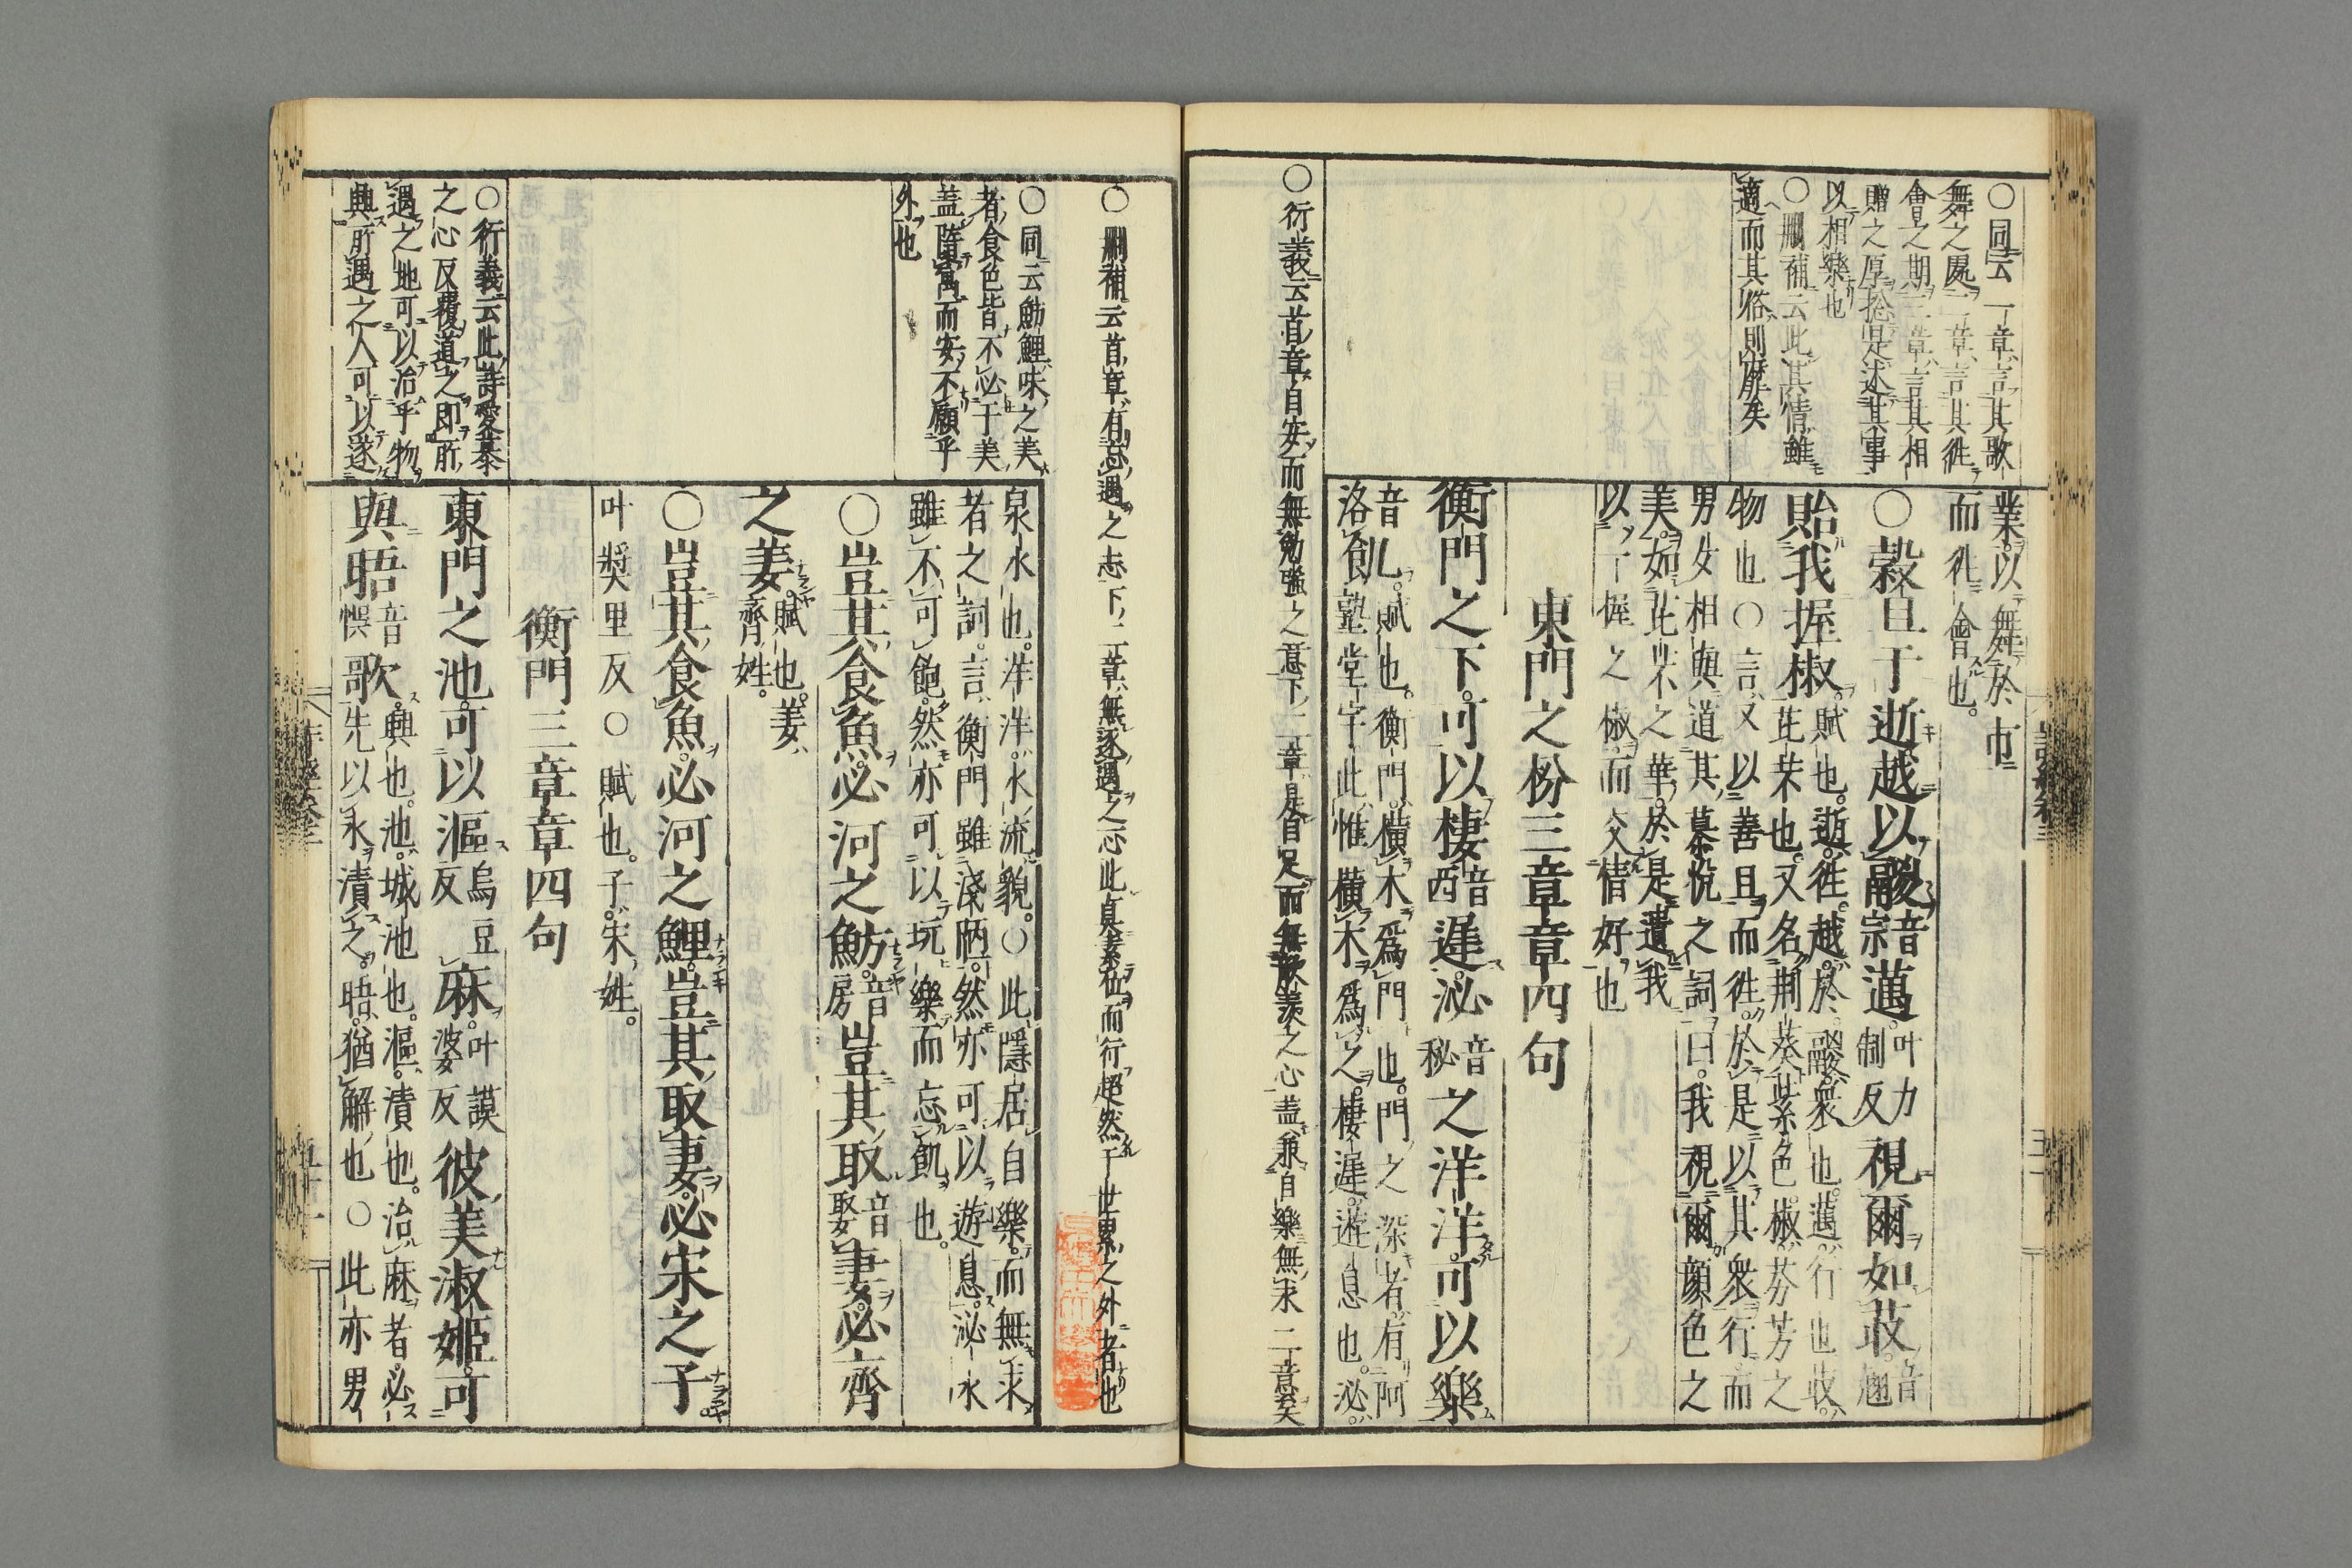 ○同云一章言其歌
舞之處二章言其徃
會之期三章言其相
贈之厚捴是述其事
以相樂也
○刪補云此其情雖
適而其俗則靡矣
業以舞於市
而徃會也。
○榖旦于逝越以鬷音宗邁叶力制反視爾如荍音翹
貽我握椒。賦也。逝。徃。越。於。鬷。衆也。邁。行也荍。芘芣也。又名荆葵紫色椒。芬芳之
物也○言又以善旦而徃。於是以其衆行。而
男女相與道其慕悅之詞曰。我視爾顔色之
美。如芘芣之華。於是遺我
以一握之椒而交情好也
東門之枌三章章四句
衡門之下。可以棲音西遲。泌音秘之洋洋。可以樂
音洛飢。賦也。衡門。橫木爲門也。門之深者有阿
塾堂宇此惟橫木爲之。棲遲。遊息也。泌。
○衍義云首章自安而無勉強之意下二章是自足而無歆羨之心蓋兼自樂無求二意矣
○刪補云首章有忘遇之志下二章無逐遇之心此貞素位而行超然于世累之外者也
○同云魴鯉味之美
者食色皆不必于美
蓋隨寓而安不願乎
外也
泉水也。洋洋。水流貌。○此隱居自樂。而無求
者之詞。言衡門雖淺陋。然亦可以遊息。泌水
雖不可飽。然亦可以玩樂而忘飢也。
○豈其食魚。必河之魴。音房豈其取音娶妻。必齊
之姜。賦也。姜。齊姓。
○豈其食魚。必河之鯉。豈其取妻。必宋之子。
叶奬里反○賦也。子。宋姓。
衡門三章章四句
○衍義云此詩愛慕
之心反覆道之即所
遇之地可以洽乎物
與所遇之人可以遂
東門之池。可以漚烏豆反麻。叶謨婆反彼美淑姬。可
與晤音悞歌。興也。池。城池也。漚。漬也。治麻者必先以水漬之。晤。猶解也○此亦男